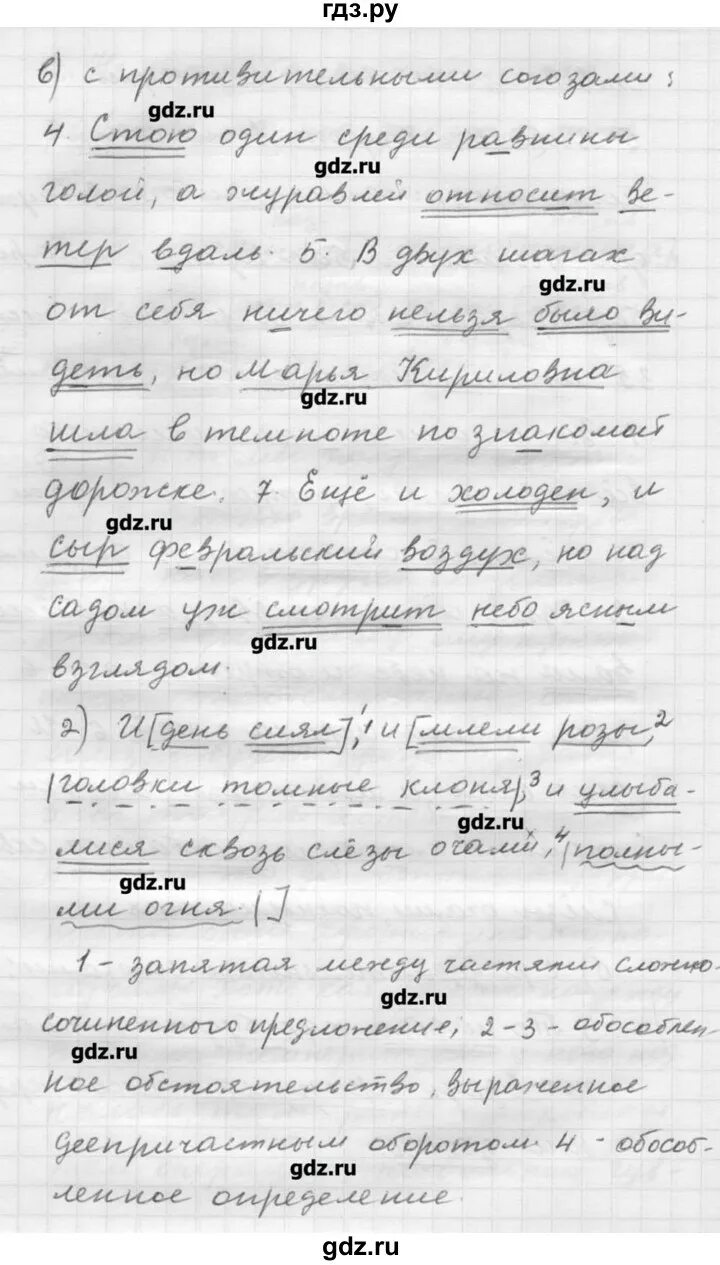 гдз.ру
в) с противительными союзами:
gdz.ru
4. Стою один среди равнины
gdz.ru
голой, а журавлей относит ве-
тер вдаль. 5. В двух шагах
gdz.ru
от себя ничего нельзя было ви-
деть, но Марья Кириловна
gdz.ru
шла в темноте по знакомой
дорожке. 7. Ещё и холоден, и
gdz.ru
сыр февральский воздух, но над
садом уж смотрит небо ясным
gdz.ru
взглядом.
2) И [день сиял],¹ и [млели розы,²
|головки томные клоня|,³ и улыба-
gdz.ru
лися сквозь слёзы очами,⁴ |полны-
gdz.ru
ми огня.|]
1 - запятая между частями сложно-
gdz.ru
сочиненного предложение; 2-3 - обособлен-
gdz.ru
ное обстоятельство, выраженное
деепричастным оборотом. 4 - обособ-
gdz.ru
ленное определение.
gdz.ru